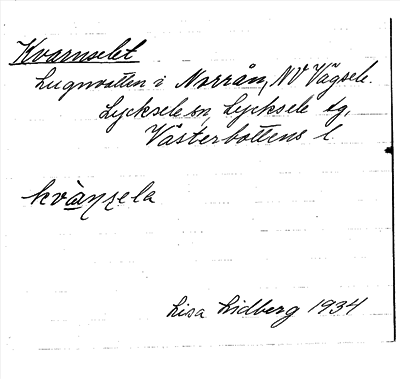 Kvarnselet
Lugnvatten i Norrån, NV Vägsele.
Lycksele sn, Lycksele tg,
Västerbottens l
kvàɳsela
Lisa Lidberg 1934